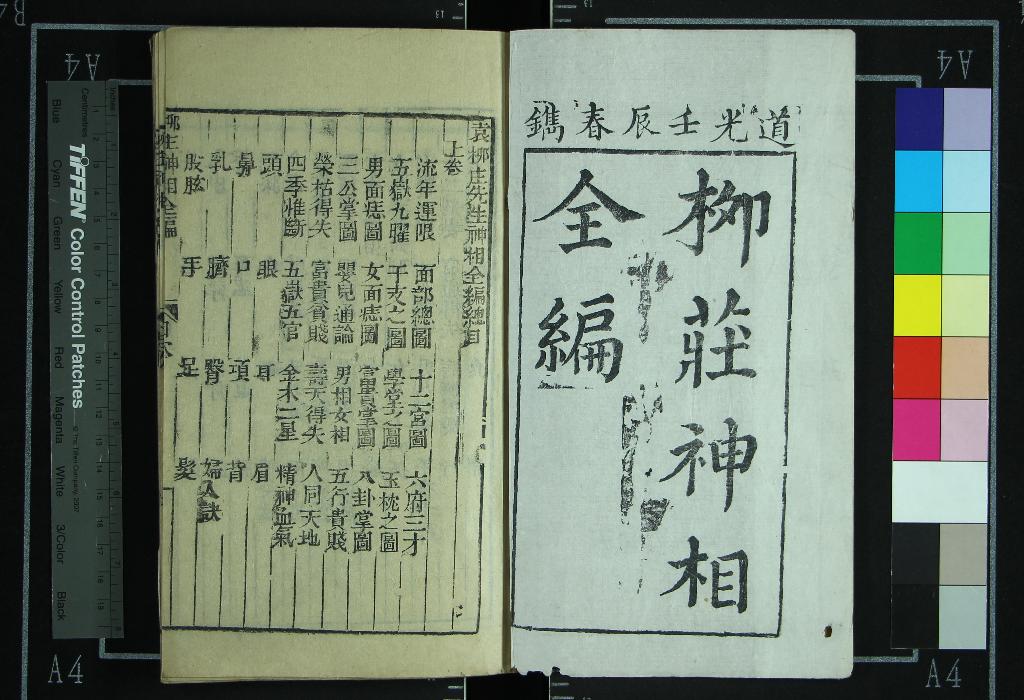 道光壬辰春鐫
柳莊神相
全編
袁柳庄先生神相全編總目
上卷
流年運限 面部總圖 十二宮圖 六府三才
五嶽九曜 干支之圖 學堂之圖 玉枕之圖
男面痣圖 女面痣圖 富貴掌圖 八卦掌圖
三公掌圖 嬰兒通論 男相女相 五行貴賤
榮枯得失 富貴貧賤 壽夭得失 人同天地
四季推斷 五嶽五官 金木二星 精神血氣
頭 眼 耳 眉
鼻 口 項 背
乳 臍 臀 婦人訣
股肱 手 足 髮
A4
A4
A4
A4
Inches
Centimetres
TIFFEN Color Control Patches
© The Tiffen Company, 2007
Blue Cyan Green Yellow Red Magenta White 3/Color Black